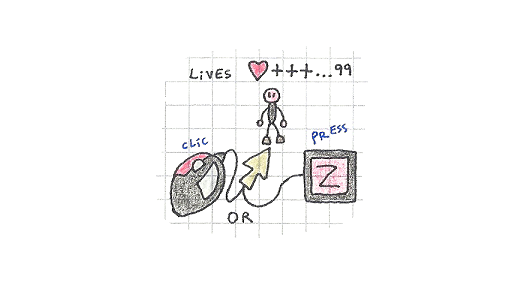 LiVES ♥+++...99
CLiC
PRESS
Z
OR